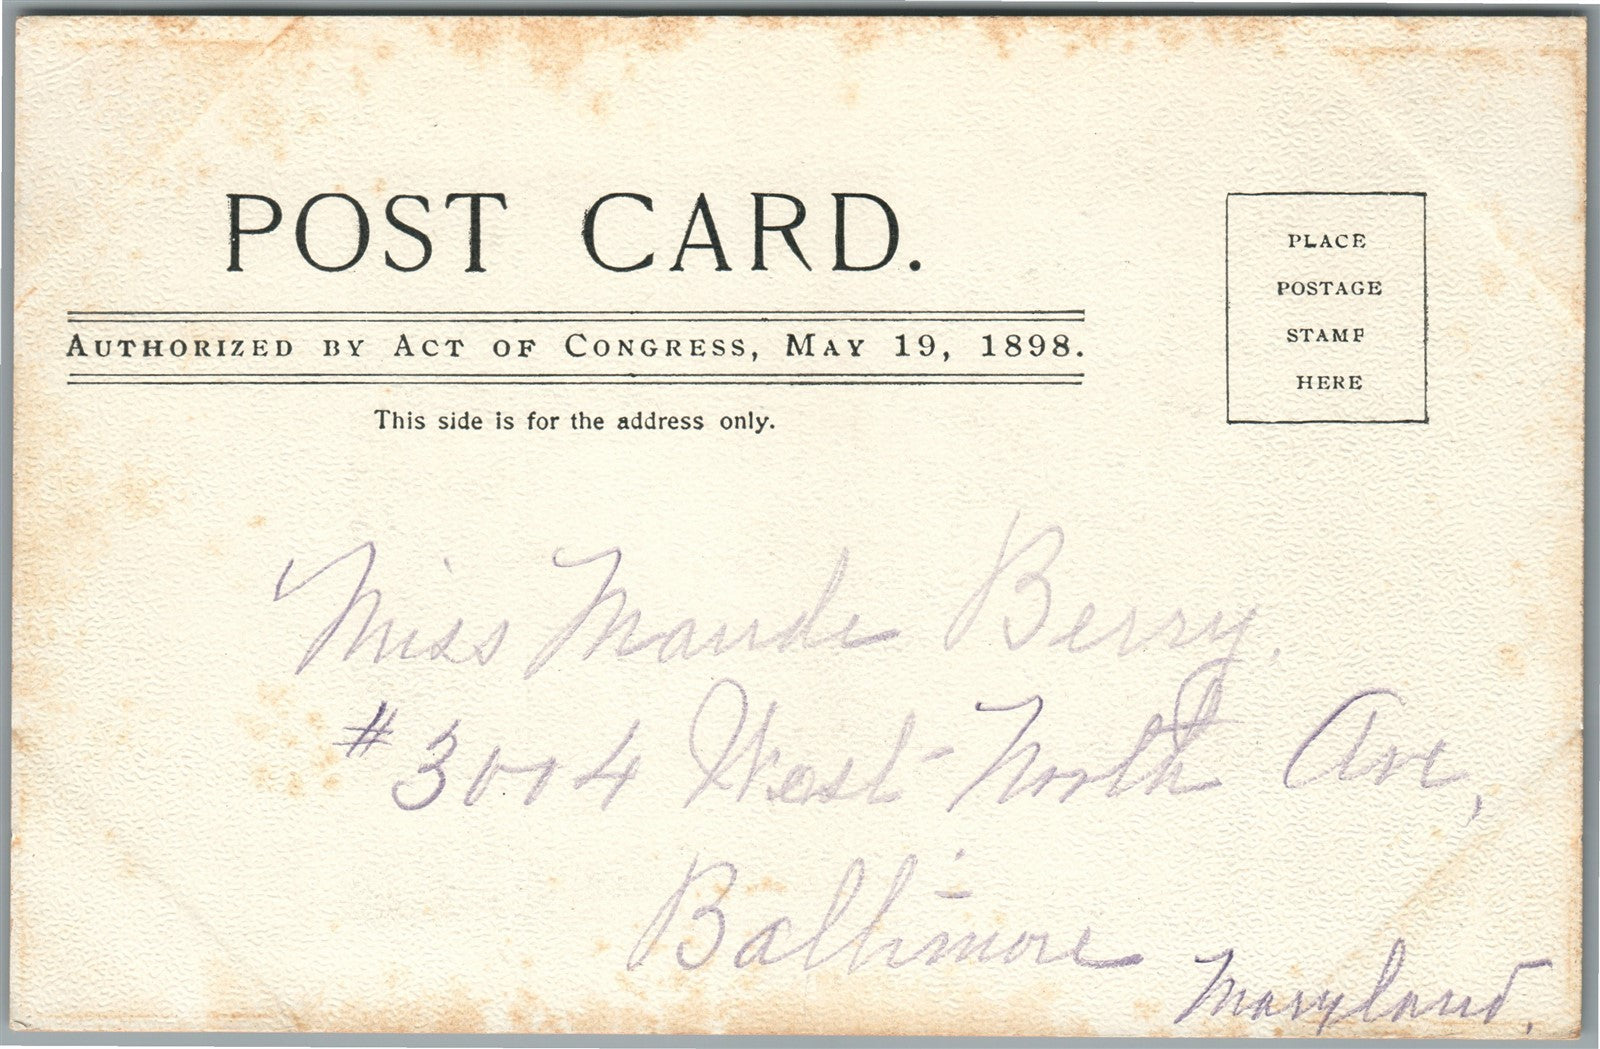 POST CARD.
AUTHORIZED BY ACT OF CONGRESS, MAY 19, 1898.
This side is for the address only.
PLACE
POSTAGE
STAMP
HERE
Miss Maude Berry,
#3004 West North Ave,
Baltimore
Maryland.